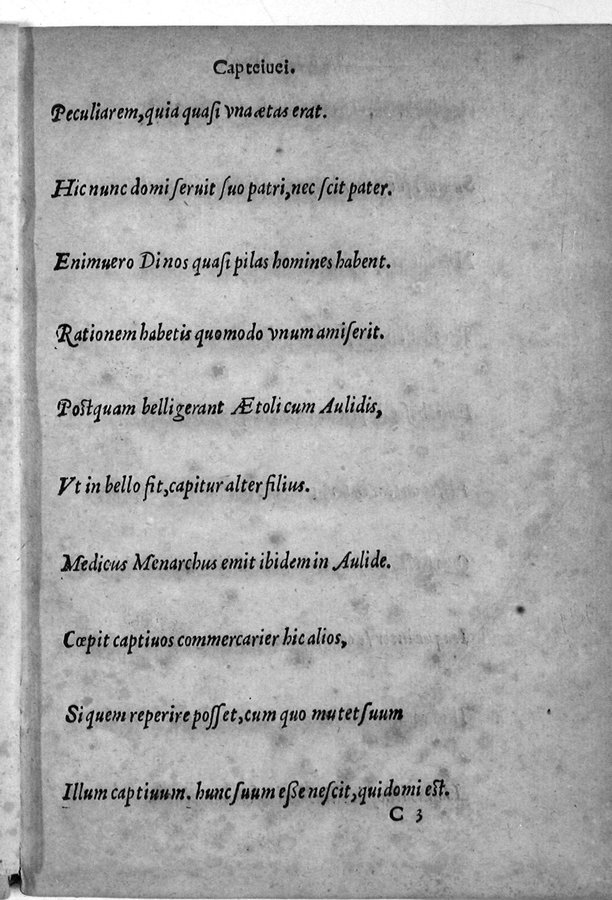 Capteiuei.
Peculiarem, quia quasi vna ætas erat.
Hic nunc domi seruit suo patri, nec scit pater.
Enimuero Di nos quasi pilas homines habent.
Rationem habetis quomodo vnum amiserit.
Postquam belligerant Ætoli cum Aulidis,
Vt in bello fit, capitur alter filius.
Medicus Menarchus emit ibidem in Aulide.
Cœpit captiuos commercarier hic alios,
Si quem reperire posset, cum quo mutet suum
Illum captiuum. hunc suum eße nescit, qui domi est.
C 3